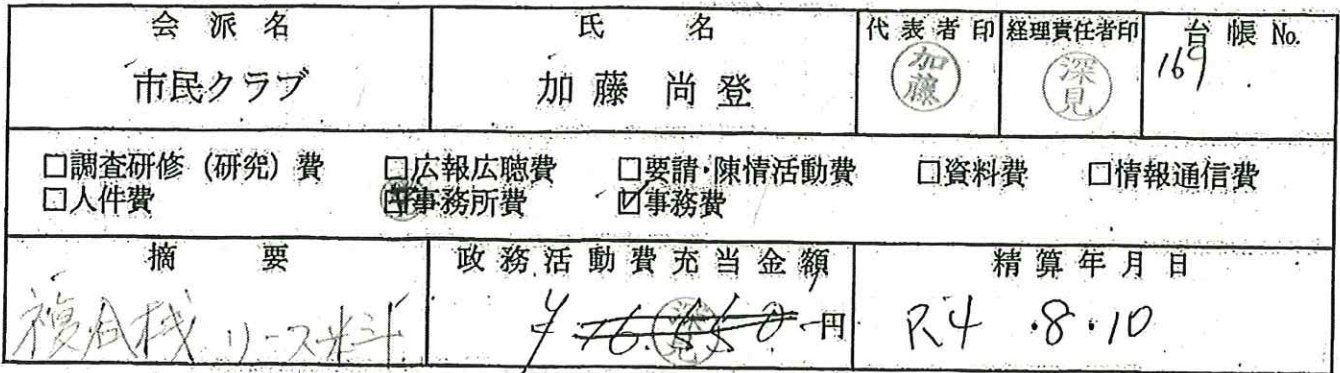 会派名 氏名 代表者印 経理責任者印 台帳 No.
市民クラブ 加藤 尚登 加藤 深見 169
□調査研修（研究）費 □広報広聴費 □要請・陳情活動費 □資料費 □情報通信費
□人件費 事務所費 ☑事務費
摘要 政務活動費充当金額 精算年月日
複合機 リース料 ¥ 16.550 円 R4 .8.10